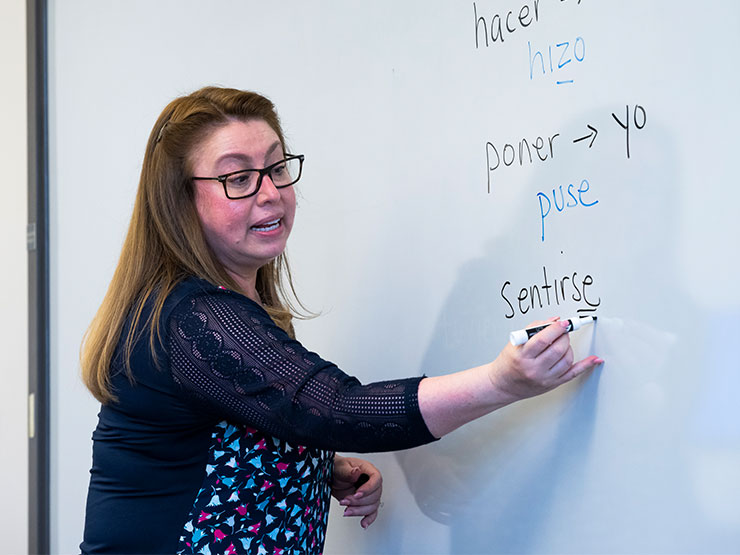 hacer
hizo
poner → yo
puse
sentirse